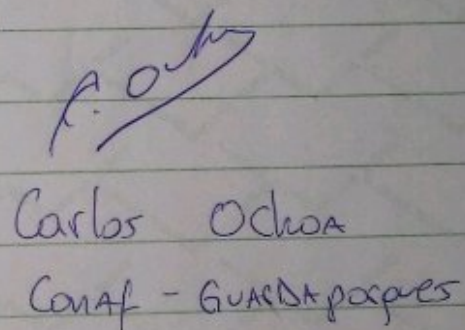 C. Ochoa
Carlos Ochoa
Conaf - GUARDAparques